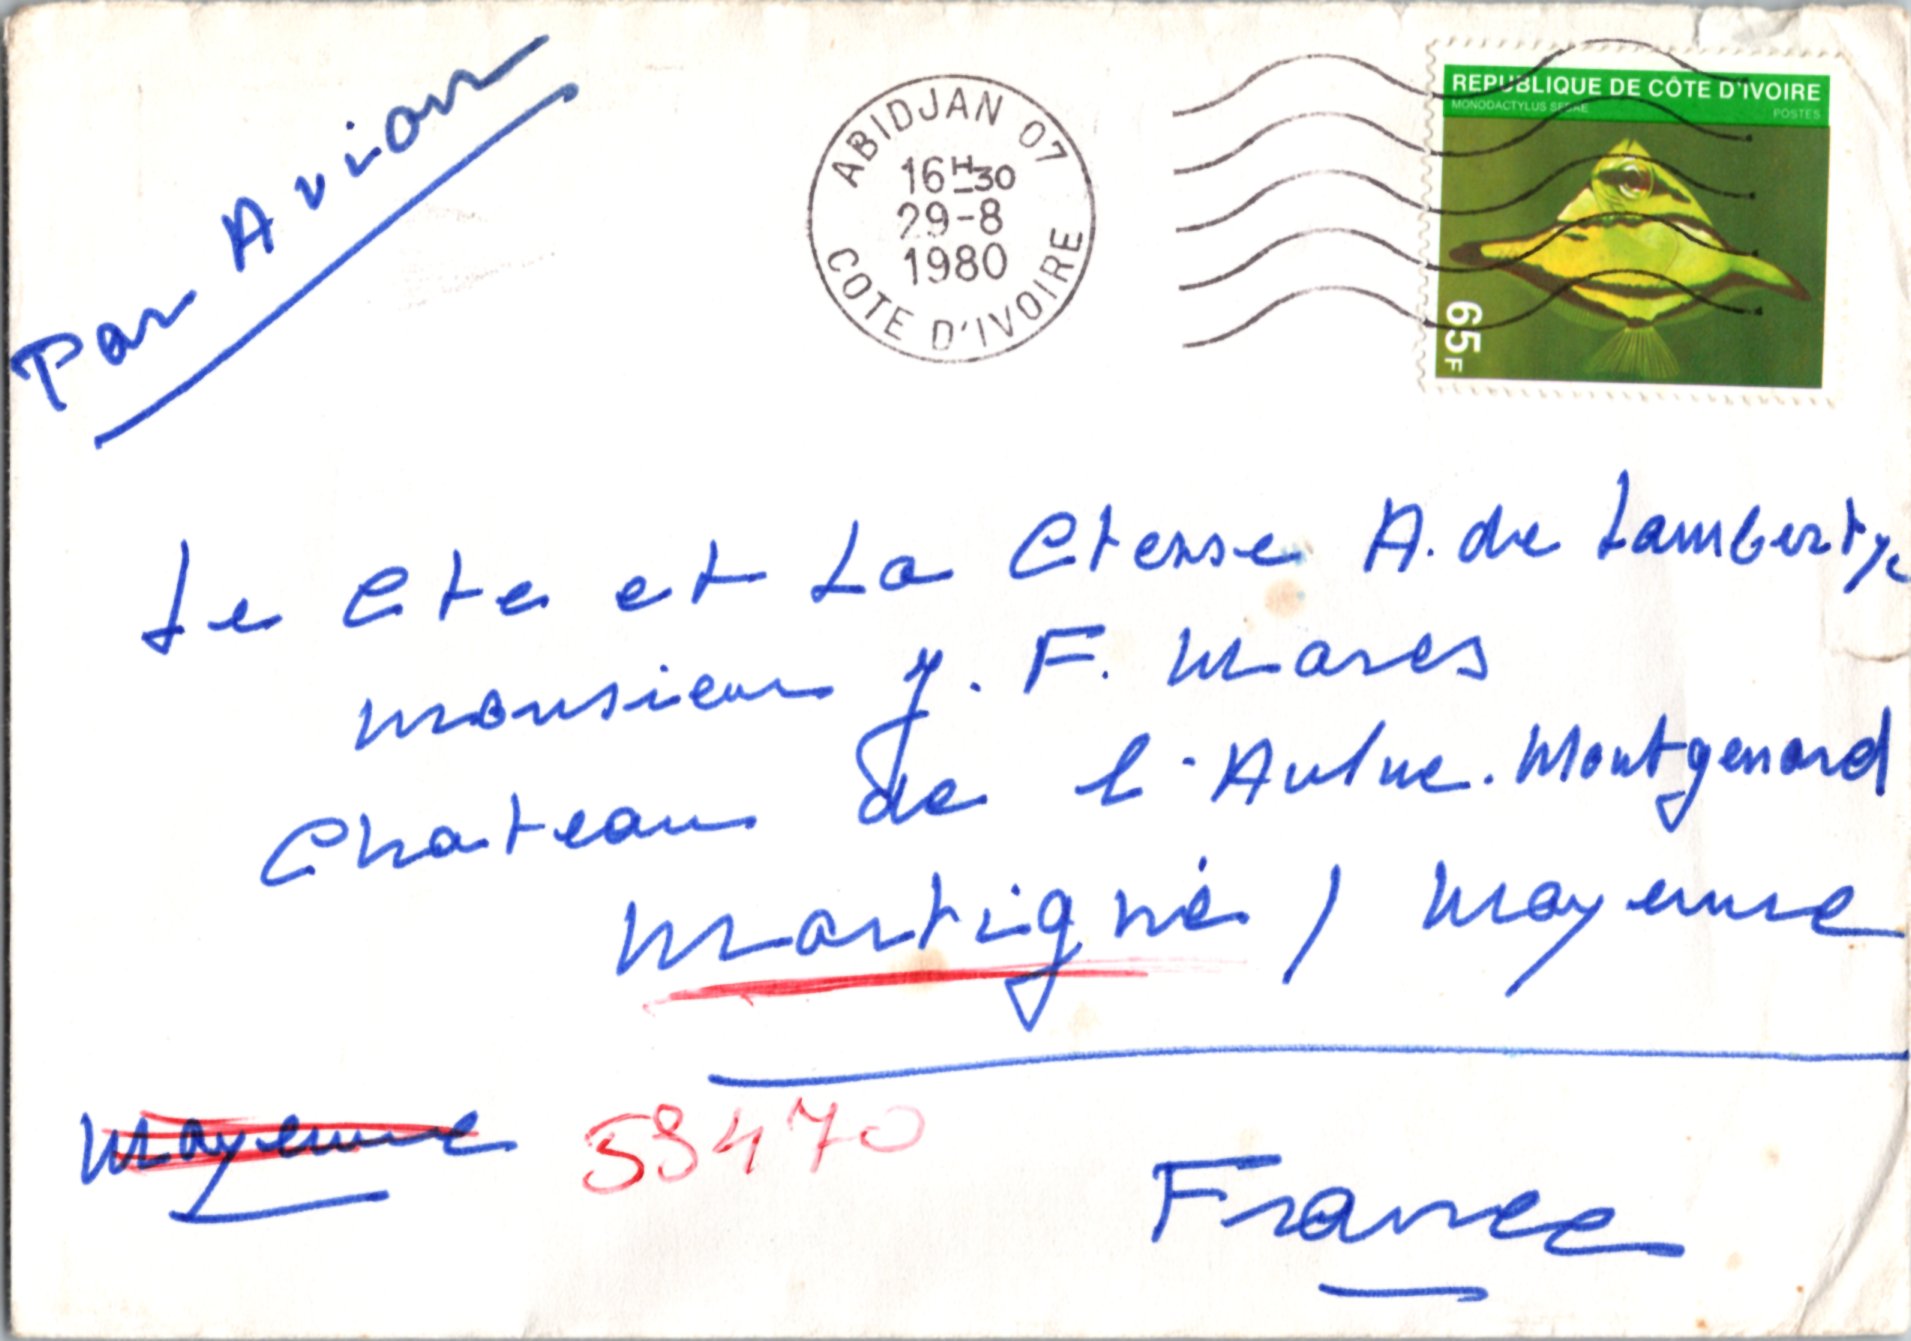 Par Avion
ABIDJAN 07
16H30
29-8
1980
COTE D'IVOIRE
REPUBLIQUE DE CÔTE D'IVOIRE
MONODACTYLUS SEBAE
POSTES
65F
Le Cte et La Ctesse A. de Lambertye
Monsieur J. F. Mares
Chateau de l'Aulne. Montgenard
Martigné / Mayenne
Mayenne 53470
France